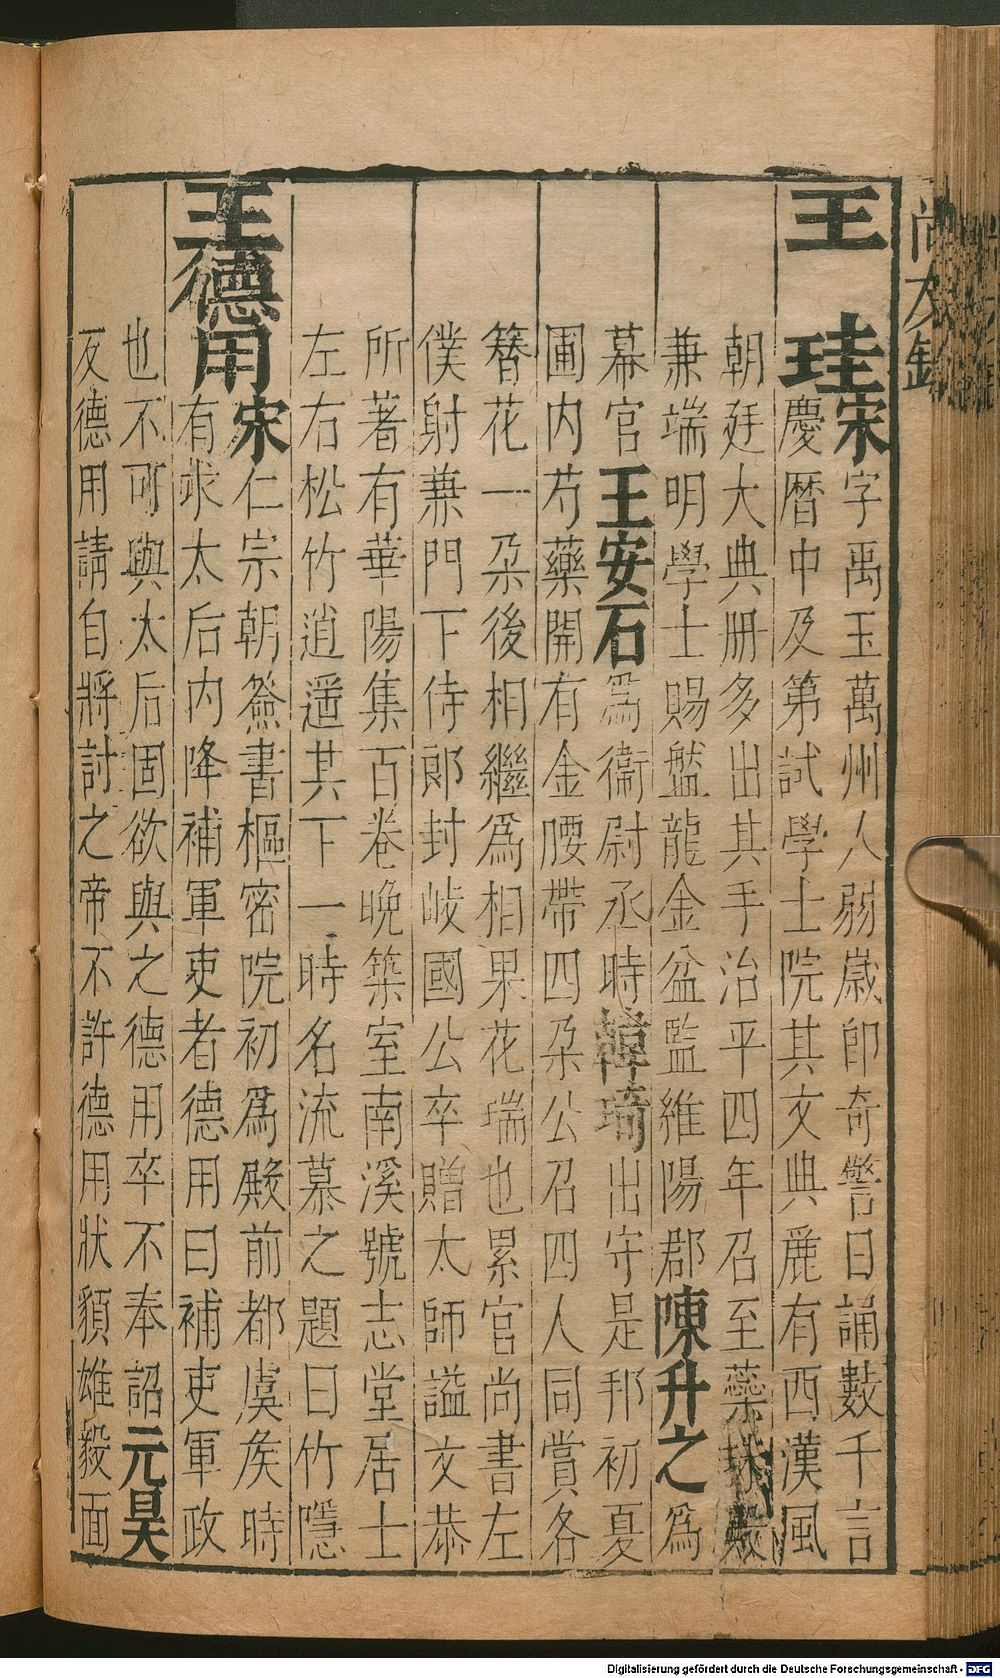 王珪宋字禹玉萬州人弱歲即奇警日誦數千言
慶曆中及第試學士院其文典麗有西漢風
朝廷大典册多出其手治平四年召至蘂珠殿
兼端明學士賜盤龍金盆監維陽郡陳升之為
幕官王安石為衞尉丞時韓琦出守是邦初夏
圃内芍藥開有金腰帶四朶公召四人同賞各
簪花一朶後相繼為相果花瑞也累官尚書左
僕射兼門下侍郎封岐國公卒贈太師謚文恭
所著有華陽集百卷晚築室南溪號志堂居士
左右松竹逍遥其下一時名流慕之題曰竹隱
王德用宋仁宗朝簽書樞密院初為殿前都虞矦時
有求太后内降補軍吏者德用曰補吏軍政
也不可與太后固欲與之德用卒不奉詔元昊
反德用請自將討之帝不許德用狀貌雄毅面
尚友錄
Digitalisierung gefördert durch die Deutsche Forschungsgemeinschaft - DFG